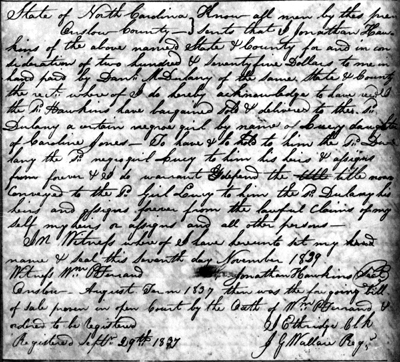 State of North Carolina } Know all men by this pre
Onslow County } sents that I Jonathan Haw
kins of the above named State & County for and in con
sideration of two hundred & seventy five Dollars to me in
hand paid by Danl. McDulany of the same, State & County
the rect. where of I do hereby acknowledge to have recd. I
the Sd. Hawkins have bargained sold & delivered to the Sd.
Dulany a certain negroe girl by name of Lucy daughter
of Caroline Jones — To have & to hold to him the Sd. Du
lany the Sd. negro girl Lucy to him his heirs & assigns
from forever & I do warrant & defend the title now
Conveyed to the Sd. Girl Lucy to him the Sd. Dulany his
heirs and assigns forever from the lawful Claims of my
self my heirs or assigns and all other persons —
In Witness where of I have hereunto set my hand
name & seal this seventh day November 1839
Witness Wm. P. Ferrand Jonathan Hawkins Seal
Onslow — August Term 1837 then was the foregoing bill
of sale proven in open Court by the Oath of Wm. P. Ferrand &
ordered to be registered J. Ethridge Clk
Registered Sept. 29th. 1837 J G Wallace Regr.